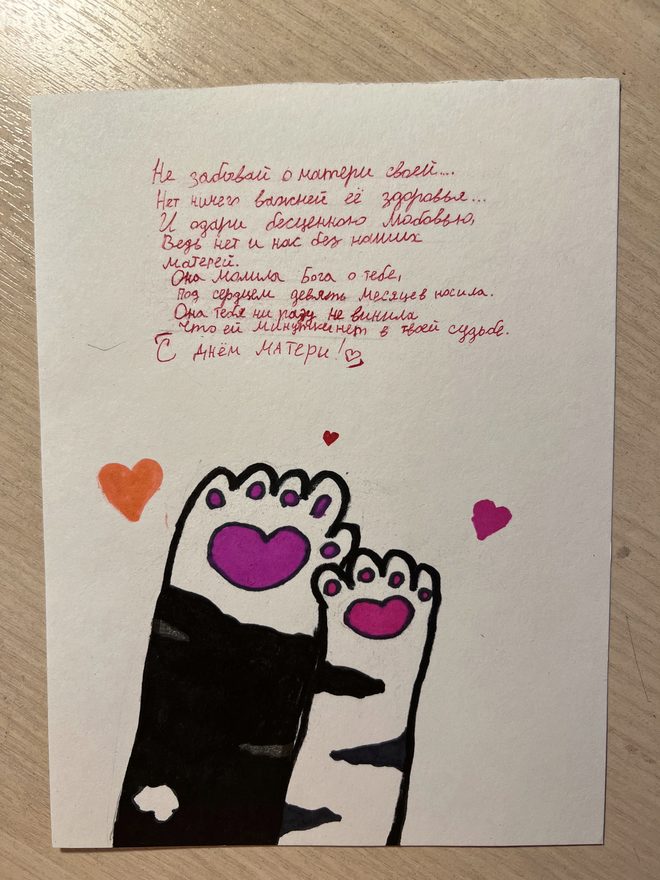 Не забывай о матери своей...
Нет ничего важней её здоровья...
И одари бесценною любовью,
Ведь нет и нас без наших
матерей.
Она молила Бога о тебе,
Под сердцем девять месяцев носила.
Она тебя ни разу не винила
Что ей минут нет в твоей судьбе.
С днём матери!